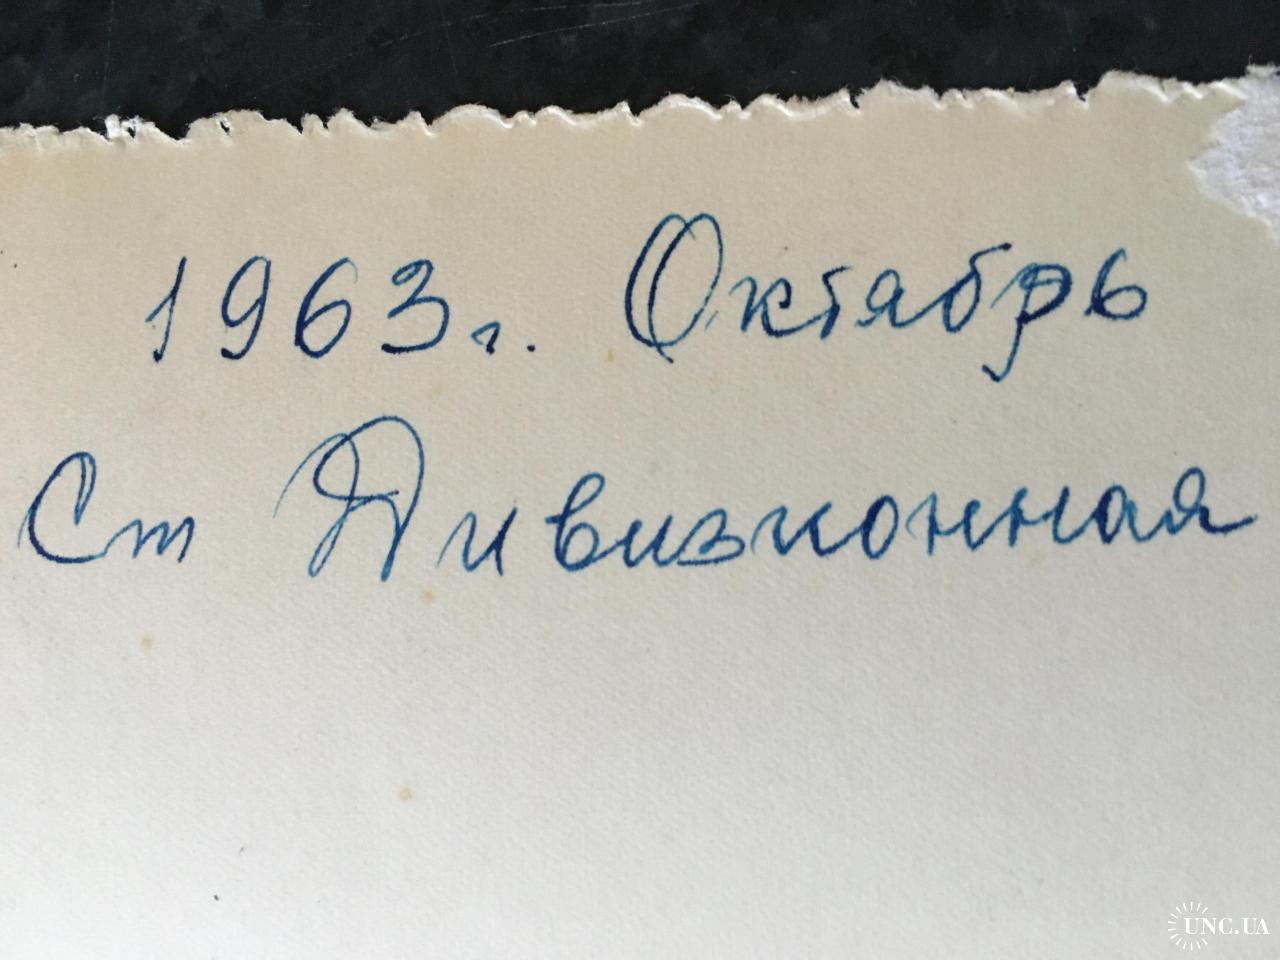 1963г. Октябрь
Ст Дивизионная
UNC.UA